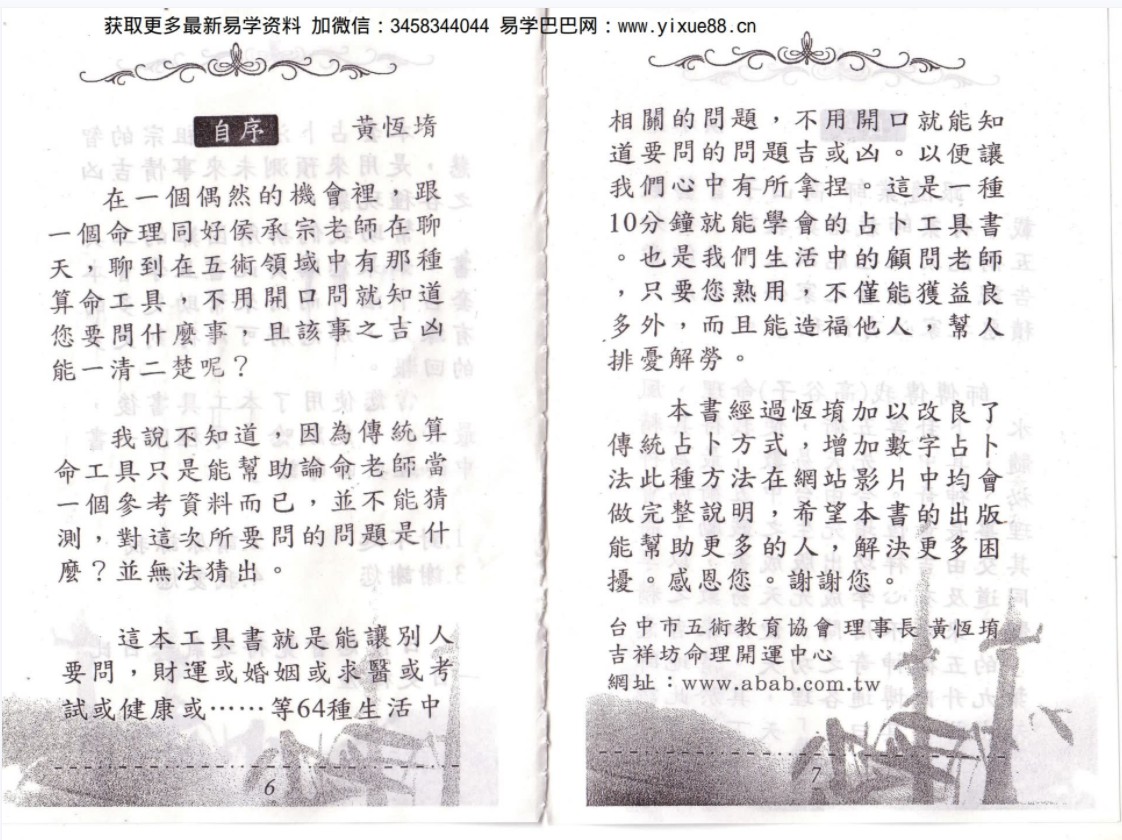 获取更多最新易学资料 加微信：3458344044 易学巴巴网：www.yixue88.cn
自序 黃恆堉
在一個偶然的機會裡，跟
一個命理同好侯承宗老師在聊
天，聊到在五術領域中有那種
算命工具，不用開口問就知道
您要問什麼事，且該事之吉凶
能一清二楚呢？
我說不知道，因為傳統算
命工具只是能幫助論命老師當
一個參考資料而已，並不能猜
測，對這次所要問的問題是什
麼？並無法猜出。
這本工具書就是能讓別人
要問，財運或婚姻或求醫或考
試或健康或⋯⋯等64種生活中
6
相關的問題，不用開口就能知
道要問的問題吉或凶。以便讓
我們心中有所拿捏。這是一種
10分鐘就能學會的占卜工具書
。也是我們生活中的顧問老師
，只要您熟用，不僅能獲益良
多外，而且能造福他人，幫人
排憂解勞。
本書經過恆堉加以改良了
傳統占卜方式，增加數字占卜
法此種方法在網站影片中均會
做完整說明，希望本書的出版
能幫助更多的人，解決更多困
擾。感恩您。謝謝您。
台中市五術教育協會 理事長 黃恆堉
吉祥坊命理開運中心
網址：www.abab.com.tw
7